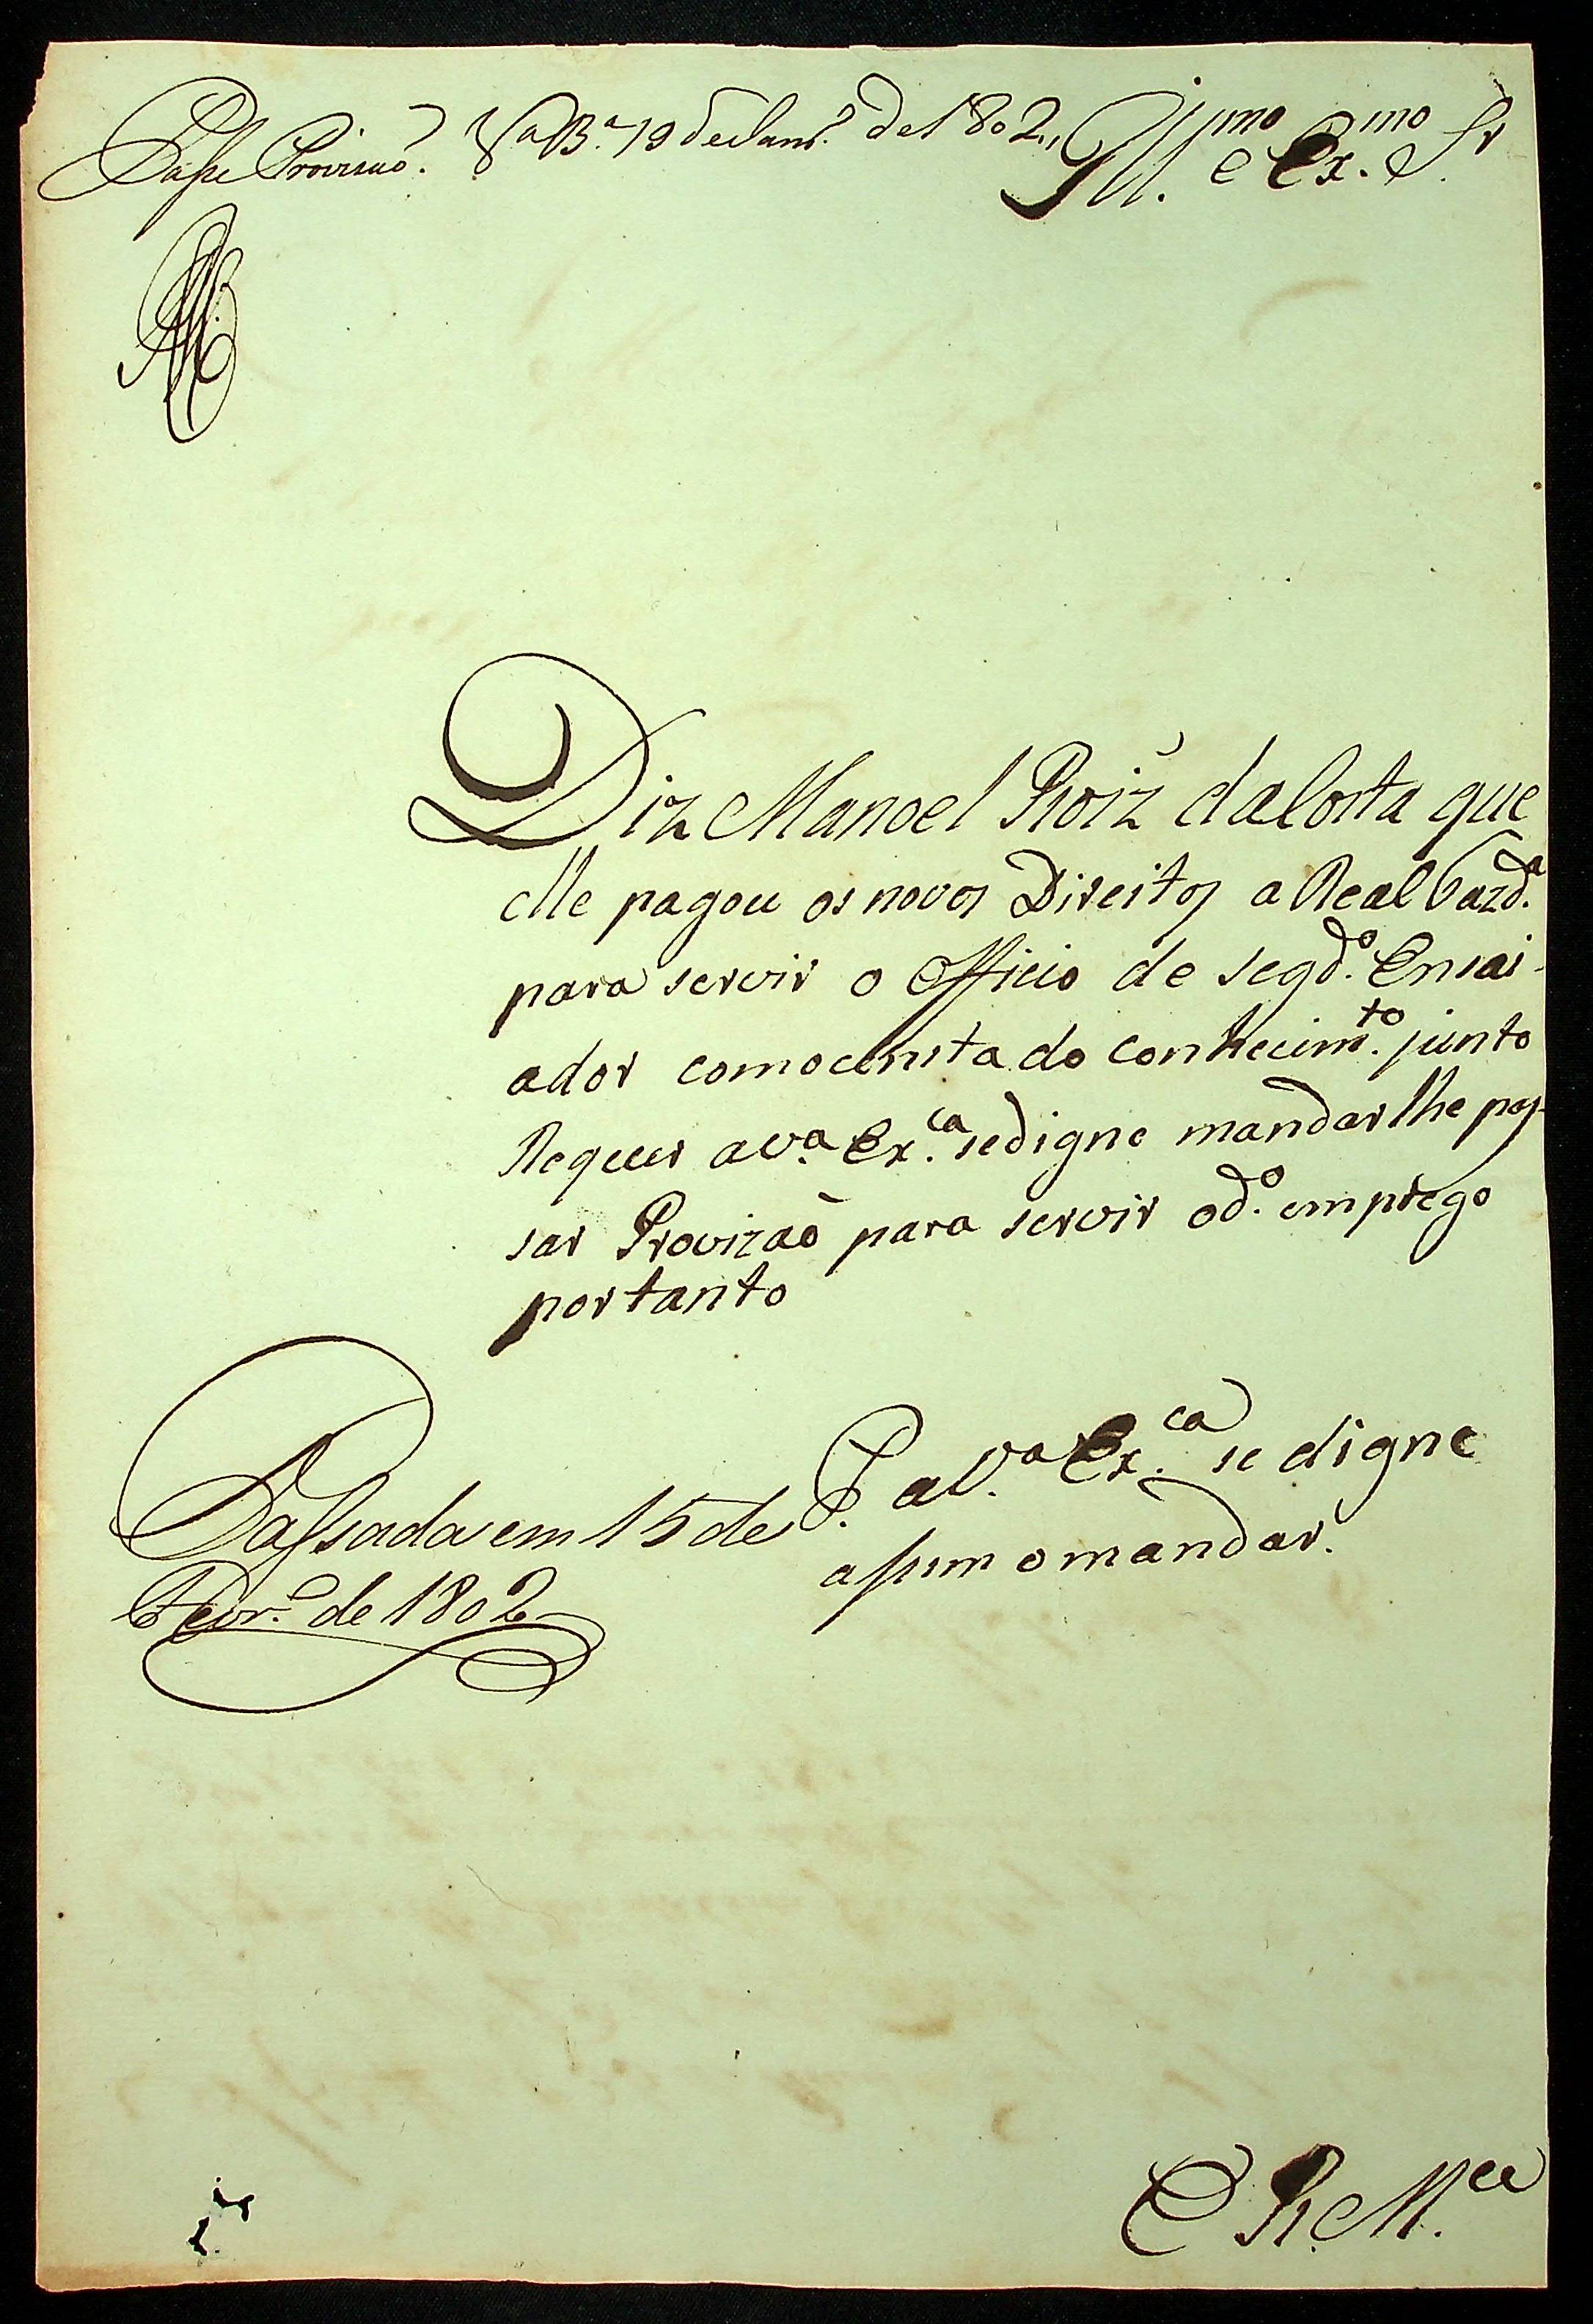 Passe Provisaõ. Va Ba. 19 de Janro. de 1802,, Illmo. e Exmo. Sr.
Diz Manoel Roiz' da Costa que
elle pagou os novos Direitos a Real Fazda.
para servir o Officio de segdo. Ensai-
ador como consta do conhecimto. junto
Requer a Va. Exca. se digne mandar lhe pas-
sar Provizaõ para servir o do. emprego
portanto
P. a Va. Exca. se digne
assim o mandar.
Passada em 15 de
Fevro. de 1802
E R. Mce